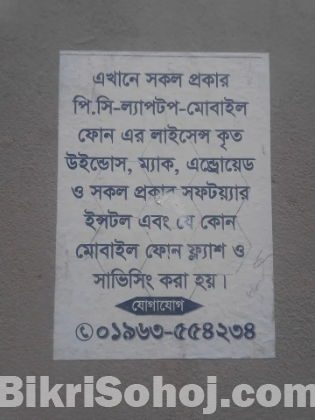 এখানে সকল প্রকার
পি.সি-ল্যাপটপ-মোবাইল
ফোন এর লাইসেন্স কৃত
উইন্ডোস, ম্যাক, এন্ড্রোয়েড
ও সকল প্রকার সফটয়্যার
ইন্সটল এবং যে কোন
মোবাইল ফোন ফ্ল্যাশ ও
সাভিসিং করা হয়।
যোগাযোগ
০১৯৬৩-৫৫৪২৩৪
BikriSohoj.com